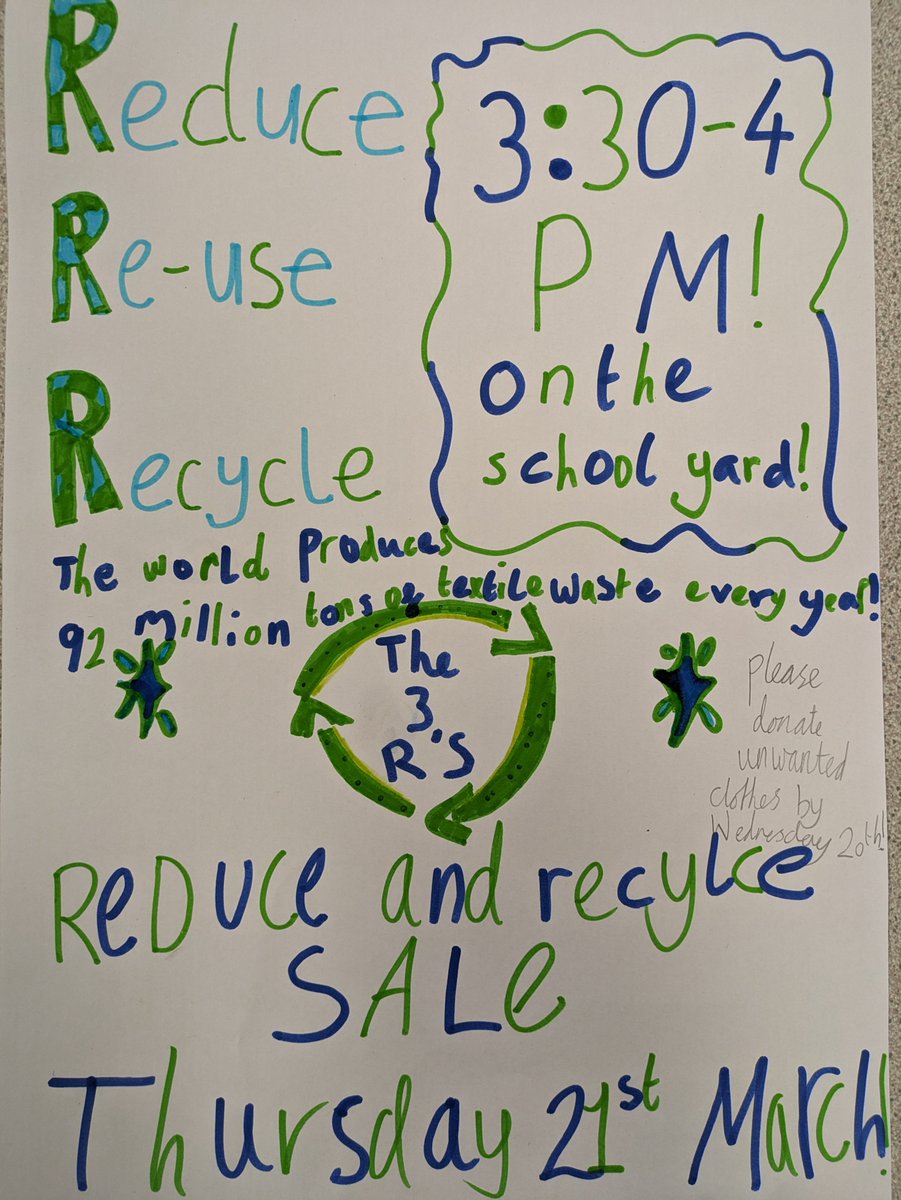 Reduce
Re-use
Recycle
3:30-4
PM!
on the
school yard!
The world produces
92 million tons of textile waste every year!
The
3
R's
please
donate
unwanted
clothes by
Wednesday 20th!
ReDuce and recylce
SALe
Thursday 21st March!